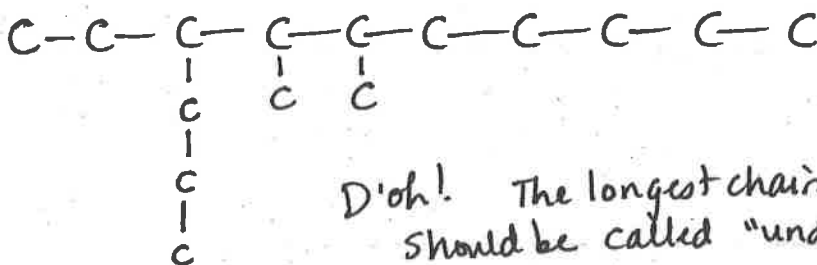 C-C-C-C-C-C-C-C-C-C
C C C
C
D'oh! The longest chain
should be called "und
C